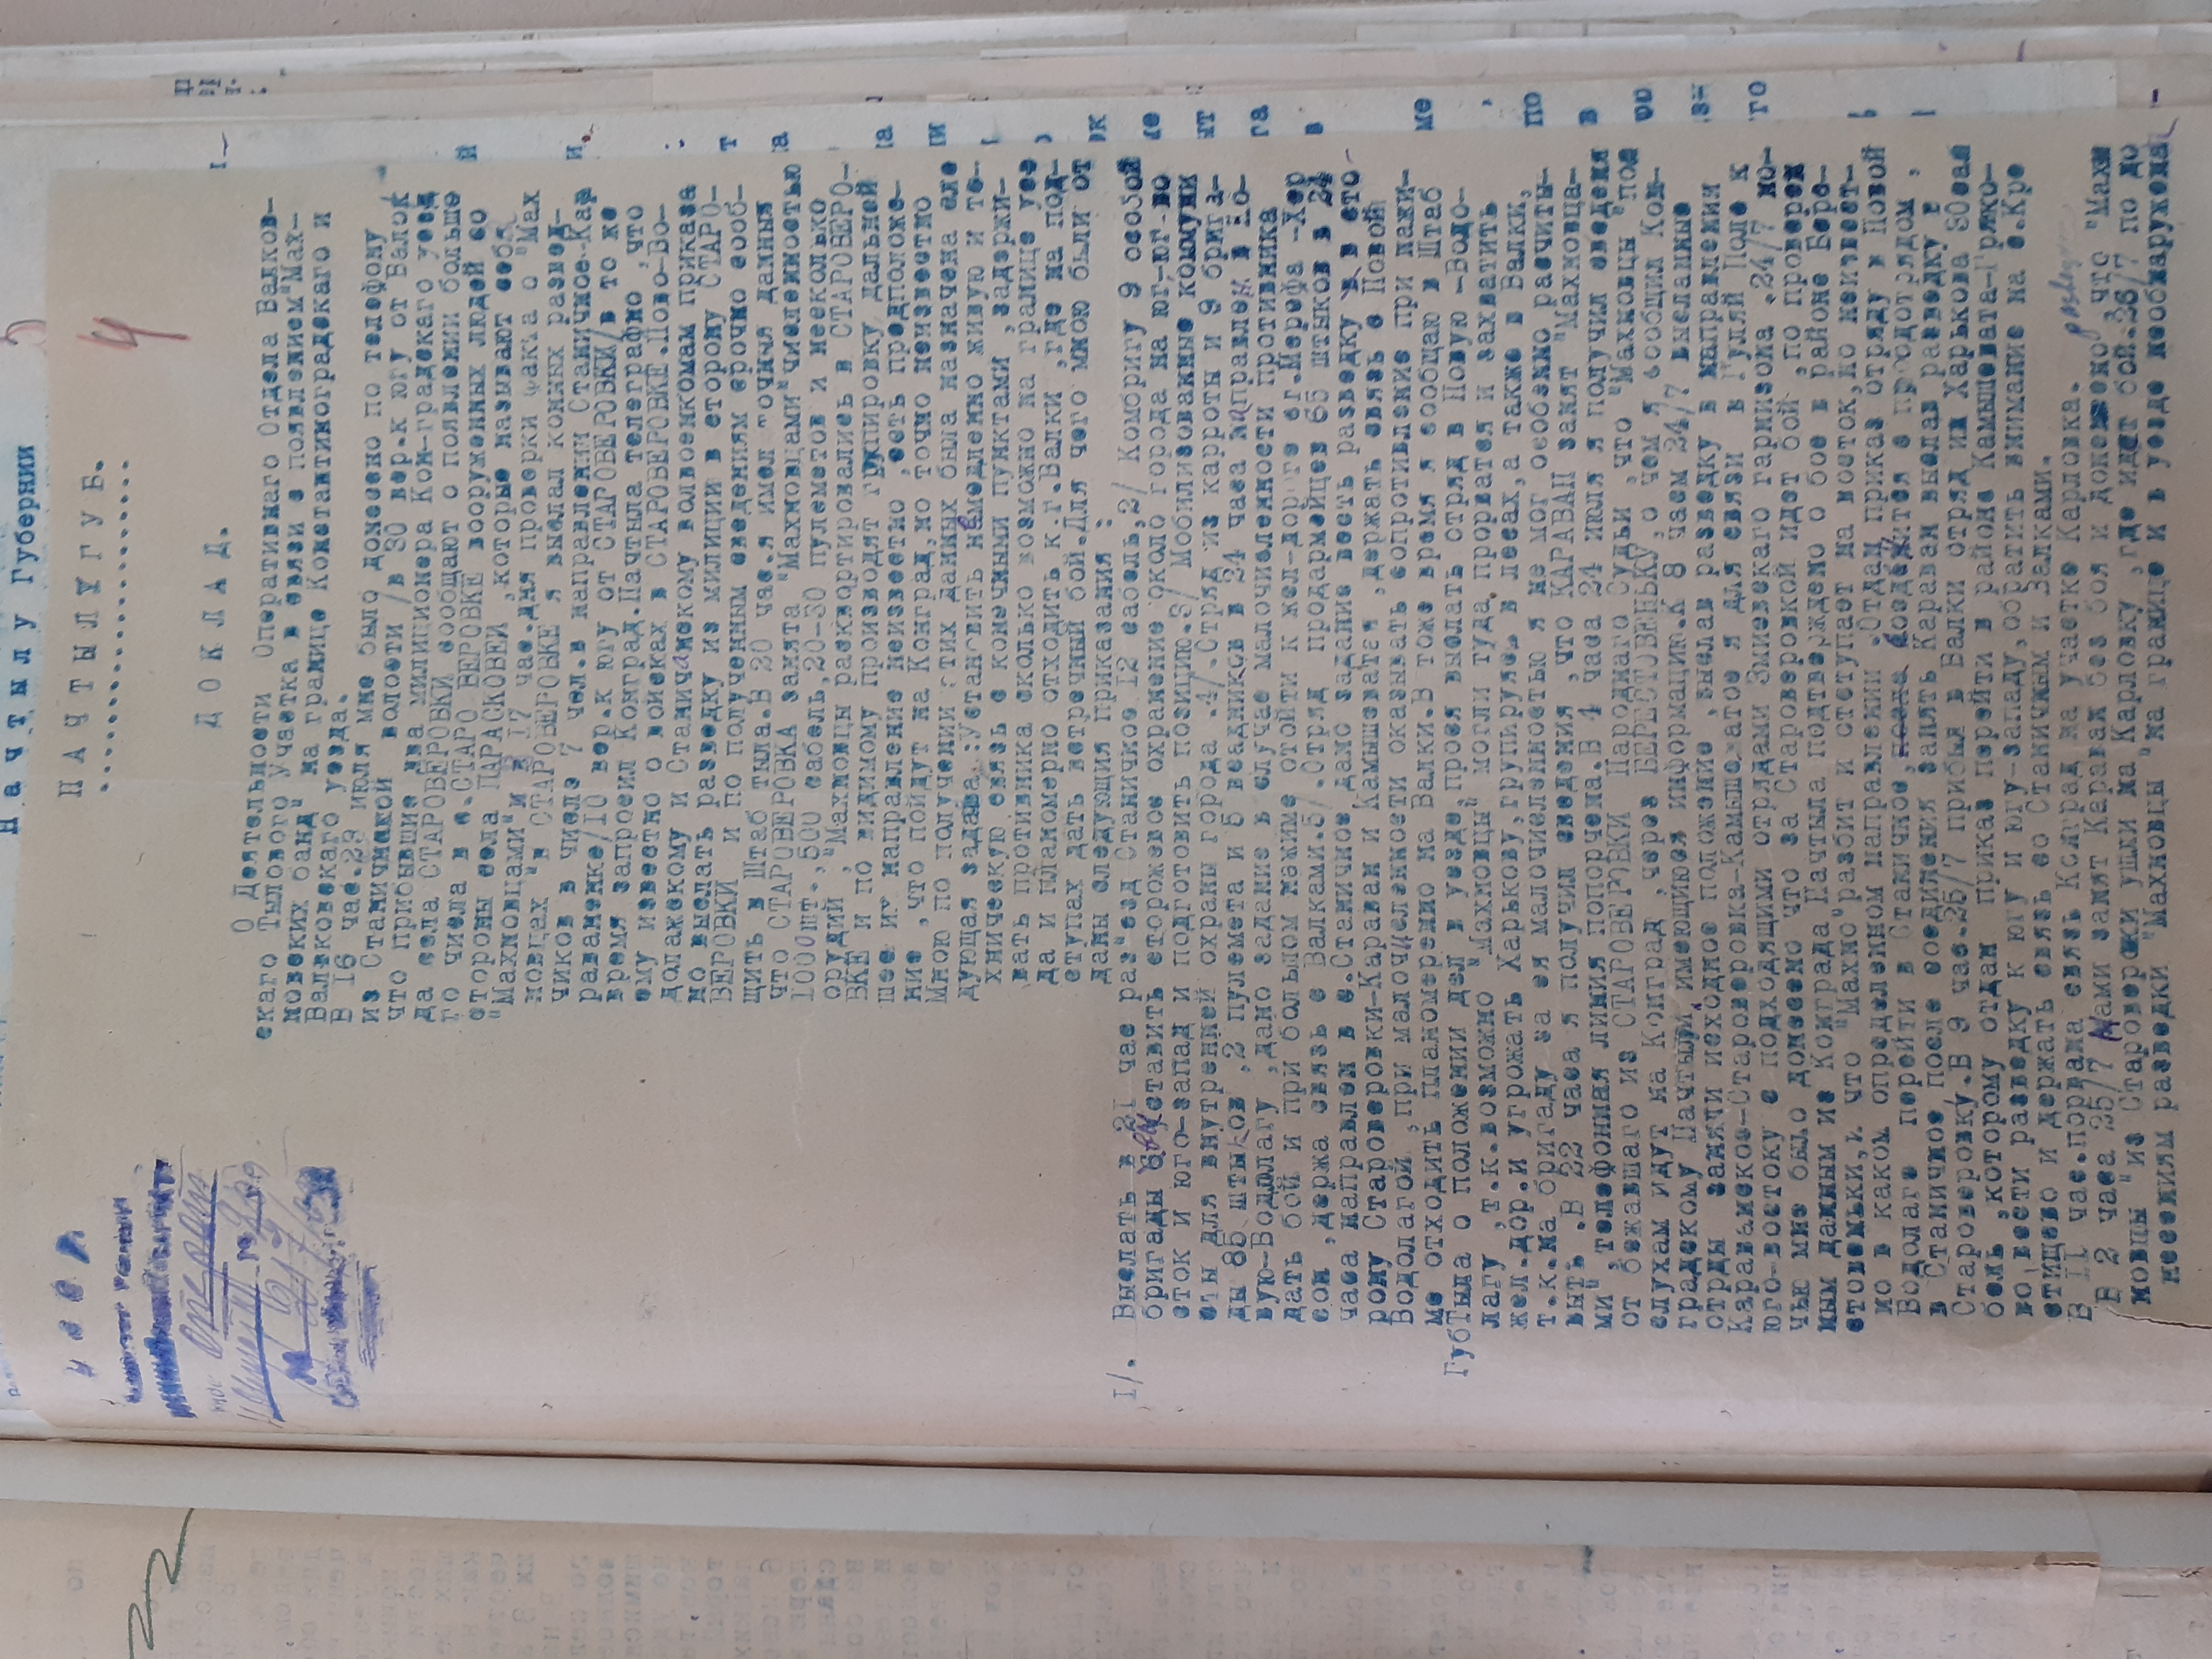 Начтылу Губернии
НАЧТЫЛУГУБ.
4
ДОКЛАД.
О Деятельности Оперативнаго Отдела Валков-
скаго Тылового Участка в связи с появлением "Мах-
новских банд" на границе Константиноградскаго и
Валковскаго уезда.
В 16 час. 23 июля мне было донесено по телефону
из Станичнской волости /в 30 вер. к югу от Валок
что прибывшие два милиционера Кон-градскаго уезд
да села СТАРОВЕРОВКИ сообщают о появлении больше
го числа в с. СТАРО ВЕРОВКЕ вооруженных людей со
стороны села ПАРАСКОВЕИ, которые называют себя
"Махновцами" и в 17 час. для проверки факта о "Мах
новцах" в СТАРОВЕРОВКЕ я выслал конных развед-
чиков в числе 7 чел. в направлении Станичное-Кар
раванске/10 вер. к югу от СТАРОВЕРОВКИ/в то же
время запросил Конград. Начтыла телеграфно, что
ему известно о войсках в СТАРОВЕРОВКЕ. Ново-Во-
долажскому и Станичанскому волвоенкомам приказа
но выслать разведку из милиции в сторону СТАРО-
ВЕРОВКИ и по полученным сведениям срочно сооб-
щить в Штаб тыла. В 20 час. я имел точныя данныя
что СТАРОВЕРОВКА занята "Махновцами" численностью
1000 шт., 500 сабель, 20-30 пулеметов и несколько
орудий, "Махновцы расквортировались в СТАРОВЕРО-
ВКЕ и по видимому производят групировку, дальней
шее их направление неизвестно, есть предположе-
ние, что пойдут на Конград, но точно неизвестно
Мною по получении этих данных была назначена сле
дующая задача: Установить немедленно живую и те-
хническую связь с конечными пунктами, задержи-
вать противника сколько возможно на границе уез
да и планомерно отходить к г. Валки, где на под-
ступах дать встречный бой. Для чего мною были от
даны следующия приказания:
1/. Выслать в 21 час раз"езд Станичное 12 сабель, 2/ Комбригу 9 особой
бригады выставить сторожевое охранение около города на юг-юг-во
сток и юго-запад и подготовить позицию. 3/ Мобилизованные комуни
сты для внутренней охраны города. 4/. Отряд из карроты и 9 брига-
ды 85 штыков, 2 пулемета и 5 всадников в 24 часа направлен в Но-
вую-Водолагу, дано задание в случае малочисленности противника
дать бой и при большом нажиме отойти к жел-дороге ст. Мерефа-Хар
сон, держа связь с Валками. 5/. Отряд продармейцев 65 штыков в 24
часа направлен в с. Станичное дано задание вести разведку в сто-
рону Староверовки-Караван и Камышеватая, держать связь с Новой
Водолагой, при малочисленности оказывать сопротивление при нажи-
ме отходить планомерно на Валки. В тоже время я сообщаю в Штаб
ГубТыла о положении дел в уезде, прося выслать отряд в Новую-Водо-
лагу, т.к. возможно "Махновцы" могли туда прорватся и захватить
жел. дор. и угрожать Харькову, групируясь в лесах, а также в Валки,
т.к. на бригаду за ея малочисленностью я не мог особенно расчиты-
выть. В 22 часа я получил сведения, что КАРАВАН занят "Махновца-
ми", телефонная линия попорчена. В 4 часа 24 июля я получил сведения
от бежавшаго из СТАРОВЕРОВКИ Народнаго Судьи, что "Махновцы" по
слухам идут на Конград, через БЕРЕСТОВЕНЬКУ, о чем я сообщил Кон-
градскому Начтылу имеющиюся информацию. К 8 часам 24/7 высланные
отрды заняли исходное положение, выслав разведку в направлении
Караванское-Староверовка-Камышеватое для связи в Гуляй Поле к
юго-востоку с подходящими отрядами Змиевскаго гарнизона. 24/7 но-
чью мне было донесено что за Староверовкой идет бой, по проверен
ным данным из Конграда Начтыла подтверждено о бое в районе Бере-
стовеньки, и что "Махно" разбит и отступает на восток, но неизвест-
но в каком определенном направлении. Отдан приказ отряду в Новой
Водолаге перейти в Станичное, соединится с продотрядом,
в Станичное, после соединения занять Караван выслав разведку в
Староверовку. В 9 час. 25/7 прибыл в Валки отряд из Харькова 30 саб
бель, которому отдан приказ перейти в район Камышевата-Гряко-
во вести разведку к югу и юго-западу, обратить внимание на с. Кре
стищево и держать связь со Станичным и Валками.
В 11 час. порвала связь Конград на участке Карловка.
В 2 часа 25/7 Нами занят Караван без боя и донесено что "Махн
новцы" из Староверовки ушли на Карловку, где идет бой. 26/7 по до
несениям разведки "Махновцы" на границе и в уезде необнаружены